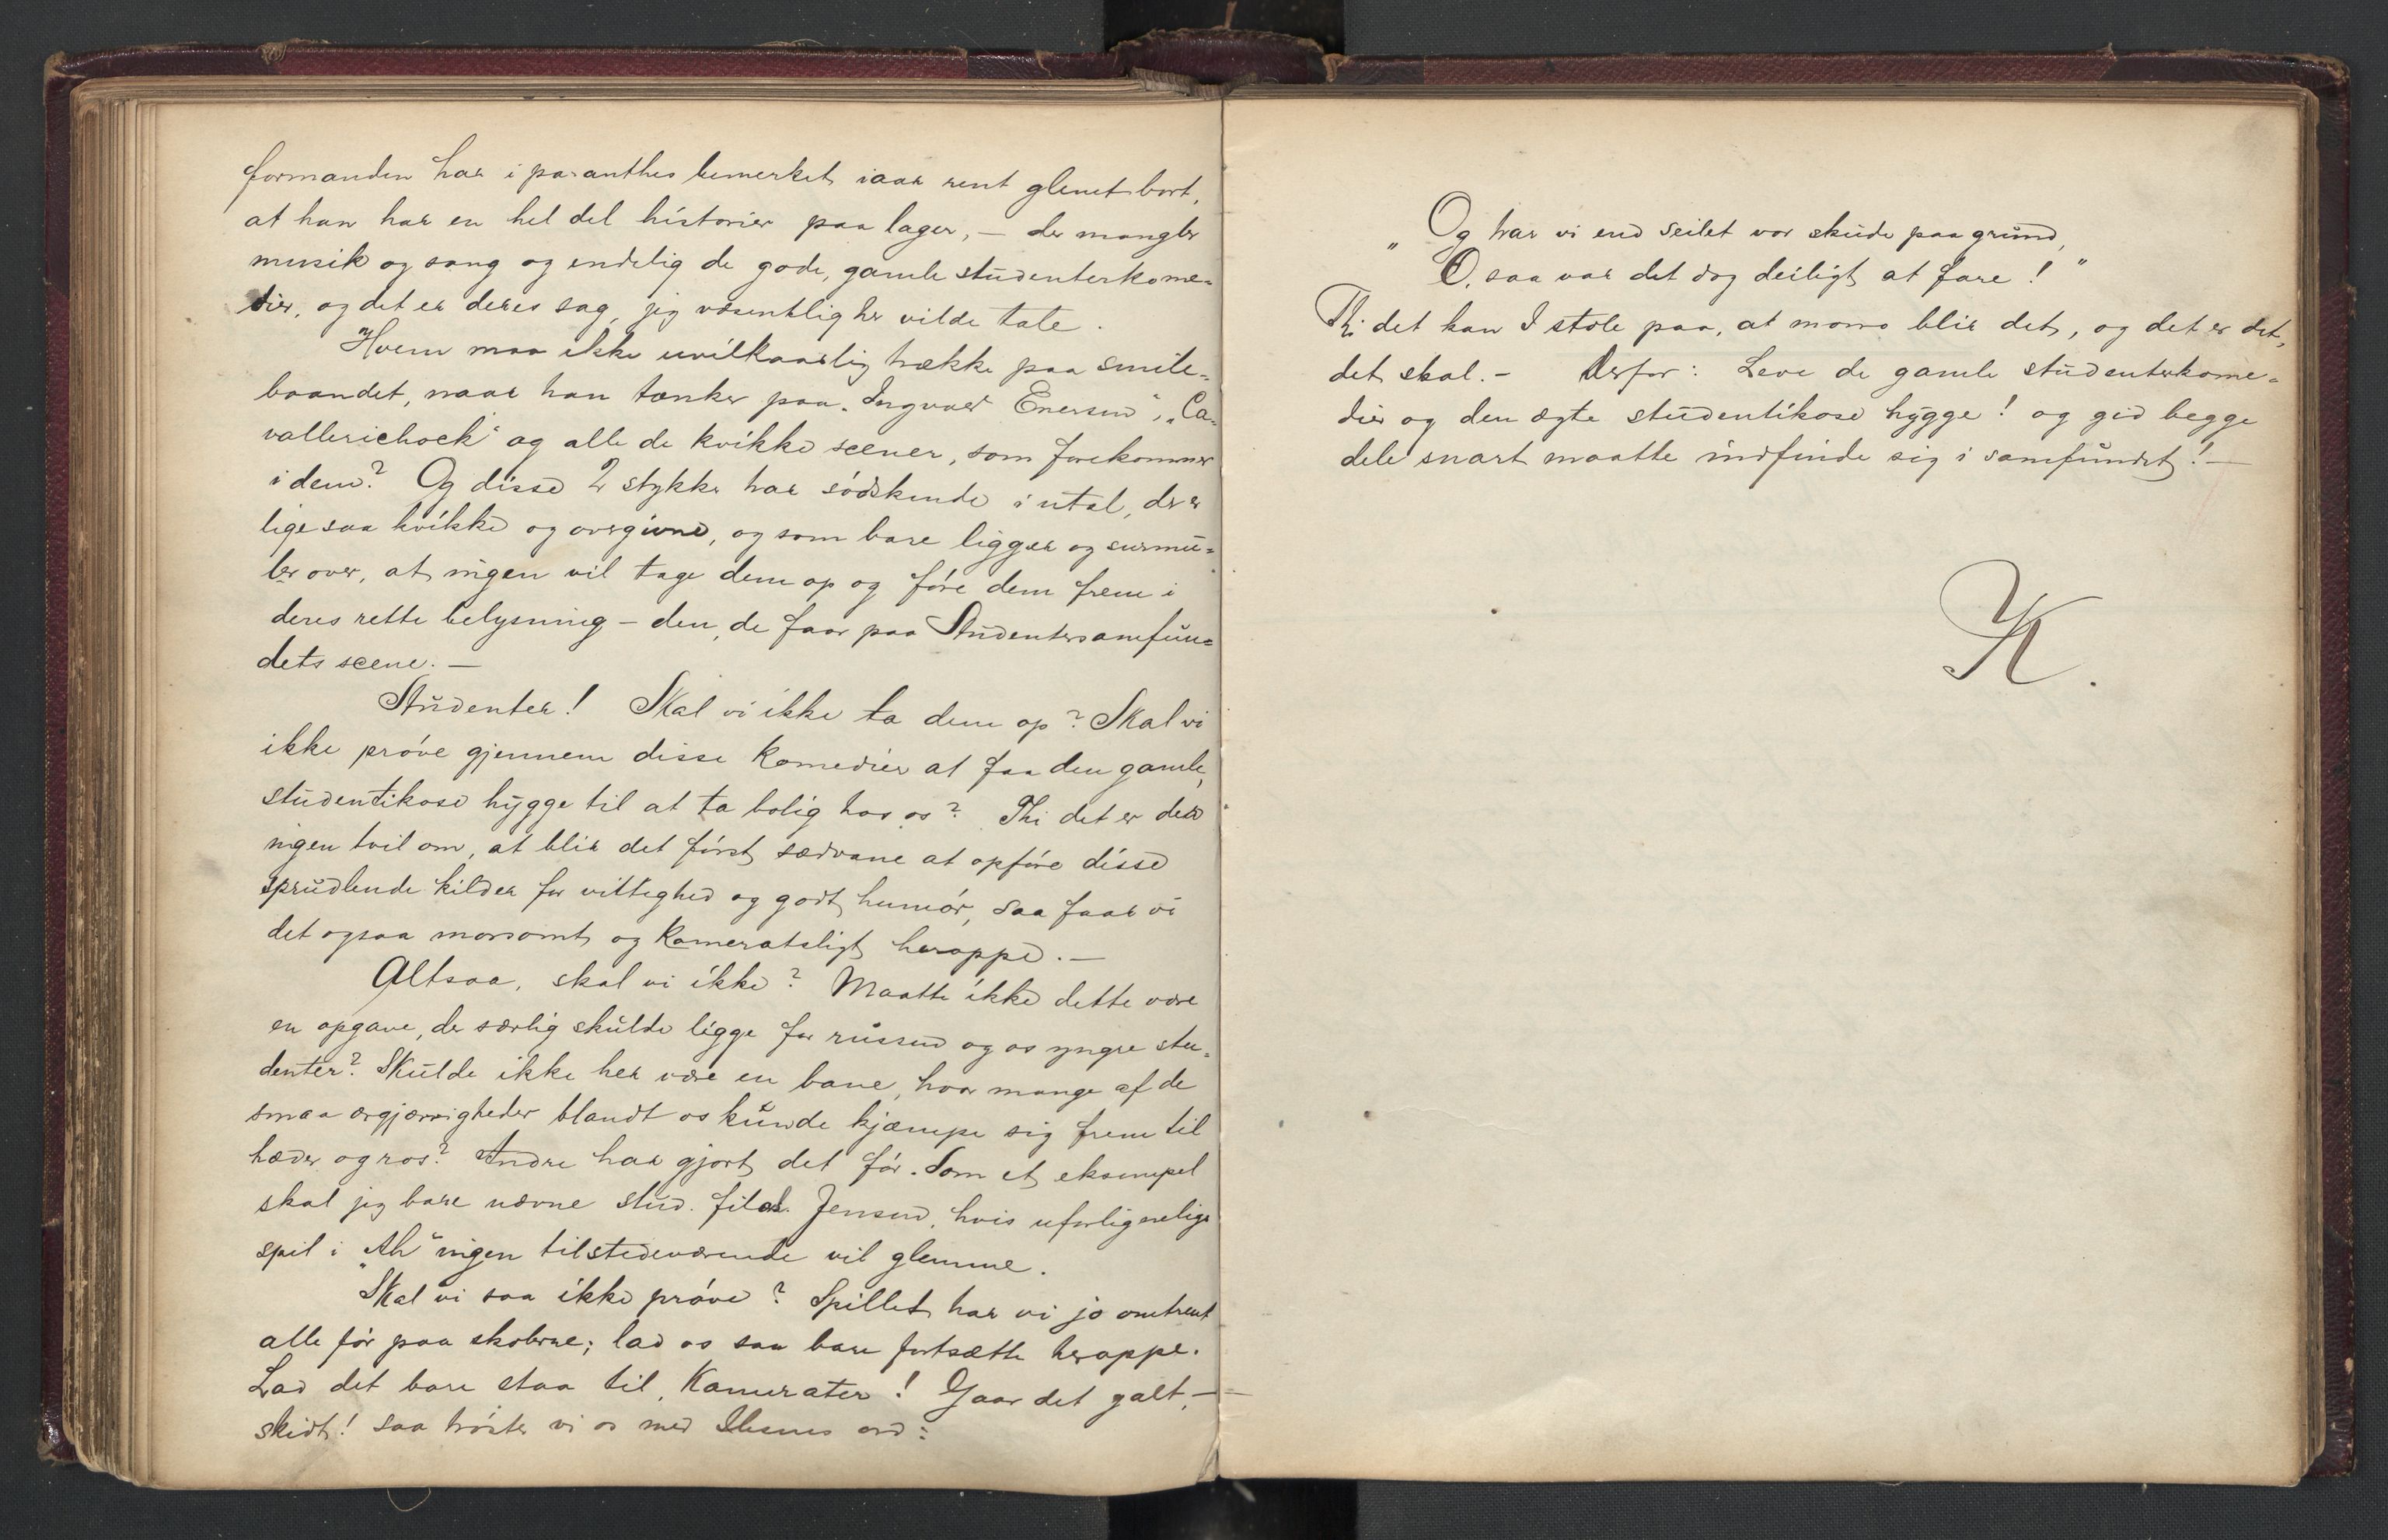 formanden har i paranthes bemerket iaar rent glemt bort,
at han har en hel del historier paa lager, — der mangler
musik og sang og endelig de gode, gamle studenterkome-
dier, og det er deres sag, jeg væsentlig her vilde tale.
Hvem maa ikke uvilkaarlig trække paa smile-
baandet, naar han tænker paa „Ingvald Enersen“, „Ca-
vallerichock“ og alle de kvikke scener, som forekommer
i dem? Og disse 2 stykker har södskende i utal, der er
ligesaa kvikke og overgivne, og som bare ligger og surmu-
ler over, at ingen vil tage dem op og före dem frem i
deres rette belysning – den, de faar paa Studentersamfun-
dets scene. —
Studenter! Skal vi ikke ta dem op? Skal vi
ikke pröve gjennem disse komedier at faa den gamle,
studentikose hygge til at ta bolig hos os? Thi det er der
ingen tvil om, at blir det först sædvane at opföre disse
sprudlende kilder for vittighed og godt humör, saa faar vi
det ogsaa morsomt og kameratsligt heroppe. —
Altsaa, skal vi ikke? Maatte ikke dette være
en opgave, der særlig skulde ligge for russen og os yngre stu-
denter? Skulde ikke her være en bane, hvor mange af de
smaa ærgjærrigheder blandt os kunde kjæmpe sig frem til
hæder og ros? Andre har gjort det för. Som et eksempel
skal jeg bare nævne stud. filol. Jensen, hvis uforlignelige
spil i „Ah“ ingen tilstedeværende vil glemme.
Skal vi saa ikke pröve? Spillet har vi jo omtrent
alle för paa skolerne; lad os saa bare fortsætte heroppe.
Lad det bare staa til, Kamerater! Gaar det galt, —
skidt! saa tröster vi os med Ibsens ord:
„Og har vi end seilet vor skude paa grund,
O, saa var det dog deiligt at fare!“
Thi det kan I stole paa, at moro blir det, og det er det,
det skal. – Derfor: Leve de gamle studenterkome-
dier og den ægte studentikose hygge! og gid begge
dele snart maatte indfinde sig i samfundet! —
K.